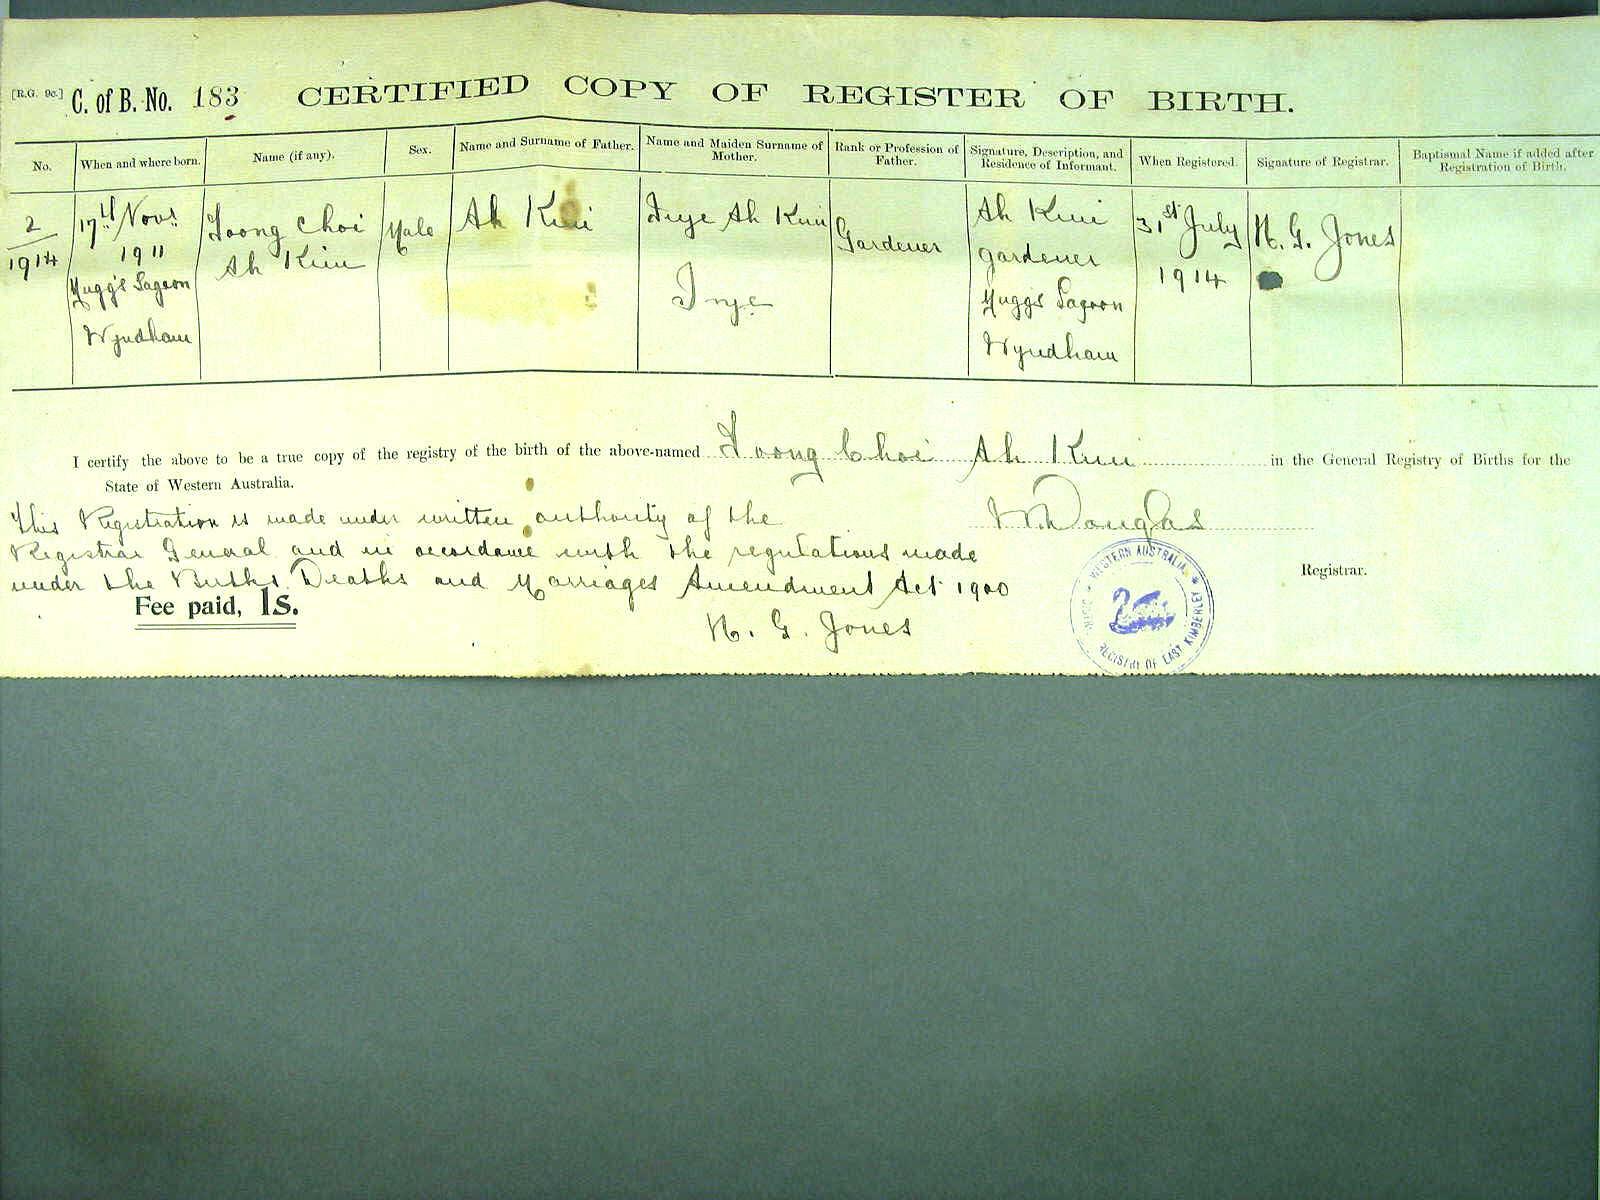 [R.G. 9c.] C. of B. No. 183 CERTIFIED COPY OF REGISTER OF BIRTH.
No.
When and where born.
Name (if any).
Sex.
Name and Surname of Father.
Name and Maiden Surname of
Mother.
Rank or Profession of
Father.
Signature, Description, and
Residence of Informant.
When Registered.
Signature of Registrar.
Baptismal Name if added after
Registration of Birth.
2
1914
17th Novr
1911
Mugg's Lagoon
Wyndham
Foong Choi
Ah Kim
Male
Ah Kim
Ah Kim
Gardener
Ah Kim
gardener
Muggs Lagoon
Wyndham
31st July
1914
H. G. Jones
I certify the above to be a true copy of the registry of the birth of the above-named Foong Choi Ah Kim in the General Registry of Births for the
State of Western Australia.
This Registration is made under written authority of the
Registrar General and in accordance with the regulations made
under the Births Deaths and Marriages Amendment Act 1900
H. G. Jones
Douglas
Registrar.
Fee paid, 1s.
WESTERN AUSTRALIA
REGISTRY OF EAST KIMBERLEY